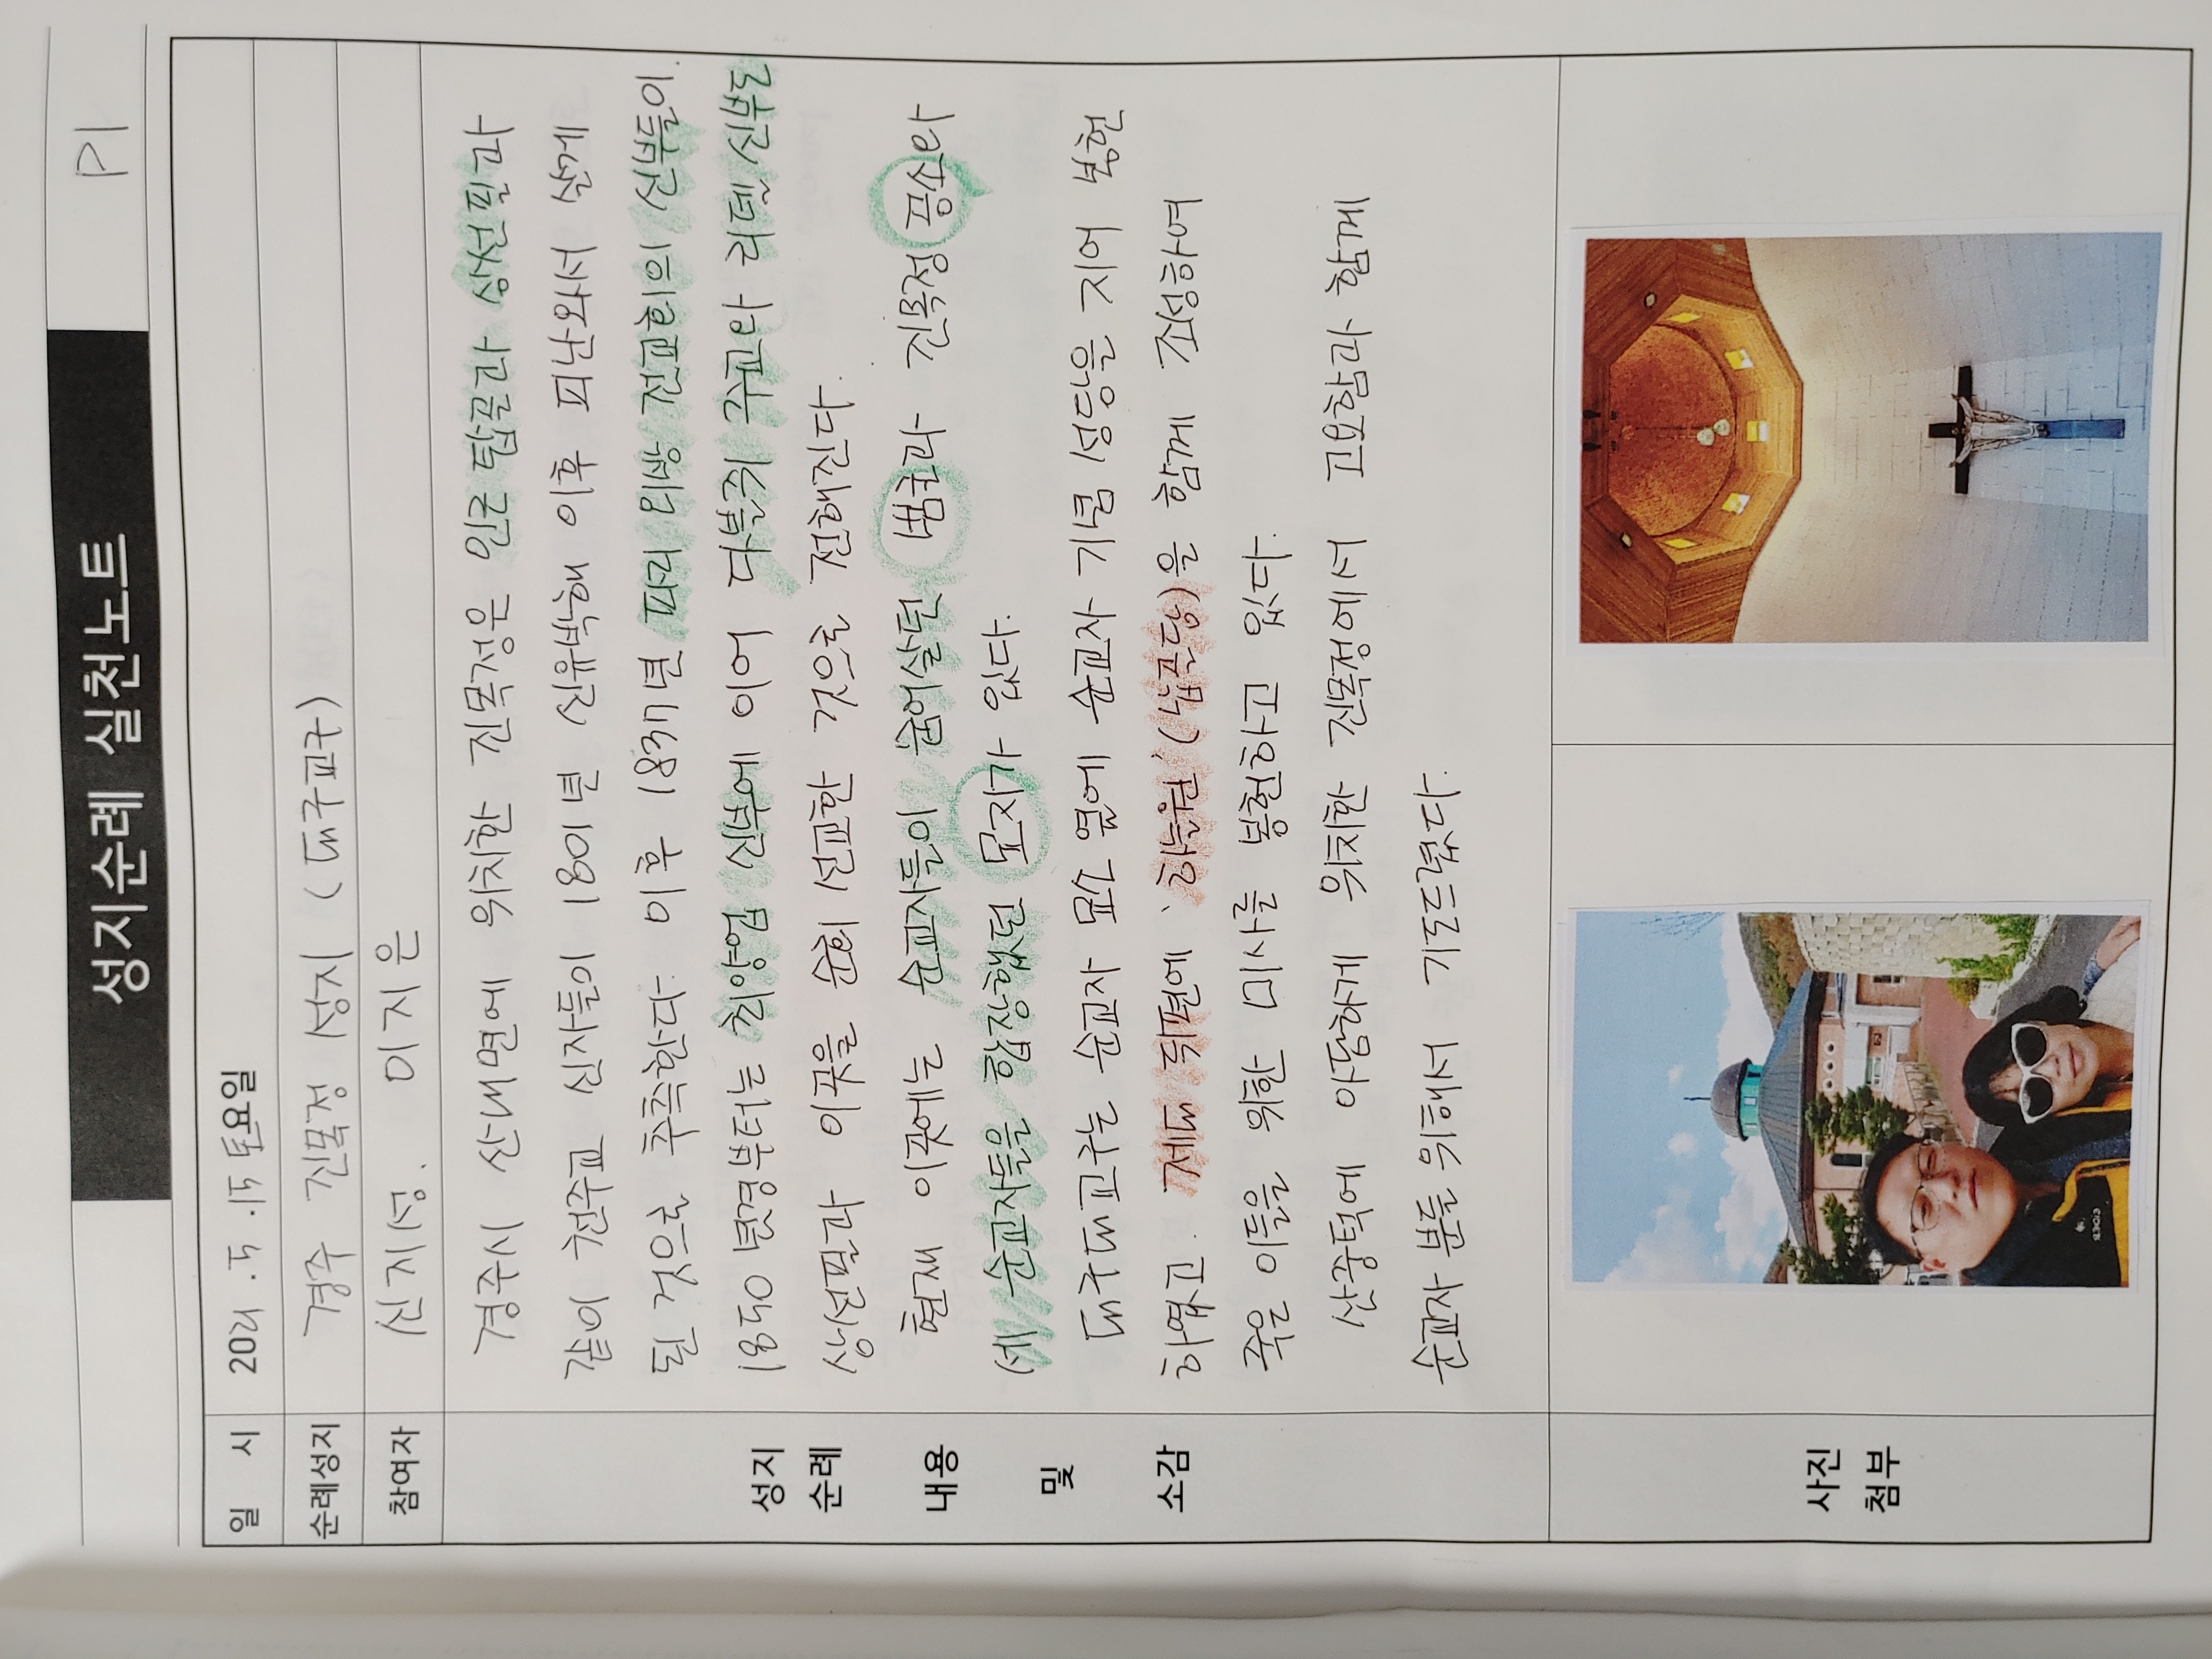 성지순례 실천노트
P1
일 시 2021. 5. 15 토요일
순례성지 경주 진목정 성지 (대구교구)
참여자 신지성. 이지은
성지
순례
내용
및
소감
경주시 산내면에 위치한 진목정은 인근 탑골과 상선필과
같이 천주교 신자들이 1801년 신유박해 이후 피난와서 살게
된 것으로 추측한다. 이후 1837년 파리 외방 전교회의 신부들이.
1850년경부터는 최양업 신부에 이어 다블뤼 주교와 리델 신부도
상선필과 이곳을 순회 선교한 것으로 전해진다.
현재 이곳에는 순교자들이 숨어살던 범굴과 진목정 공소와
(세 순교자들을 합장했던 묘지가 있다.
대구대교구는 순교자 묘소 옆에 순교자 기념 성당을 지어 봉헌
하였고. 제대 뒤편에 '하늘원'(납골당)을 함께 조성하여
죽은 이들을 위한 미사를 봉헌하고 있다.
산중턱에 아담하게 위치한 진목정에서 고요함과 함께
순교자 분들 위해서 기도드렸다.
사진
첨부